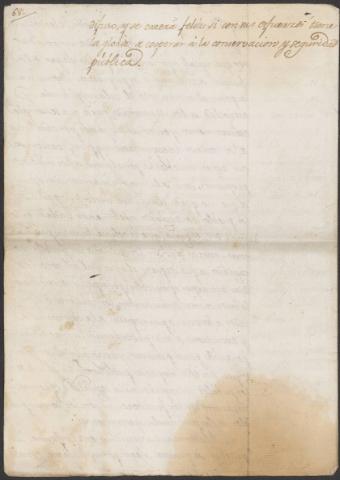 dipso, y se creerá feliz si con sus esfuerzos tiene
la gloria de cooperar á la conservacion y seguridad
pública.